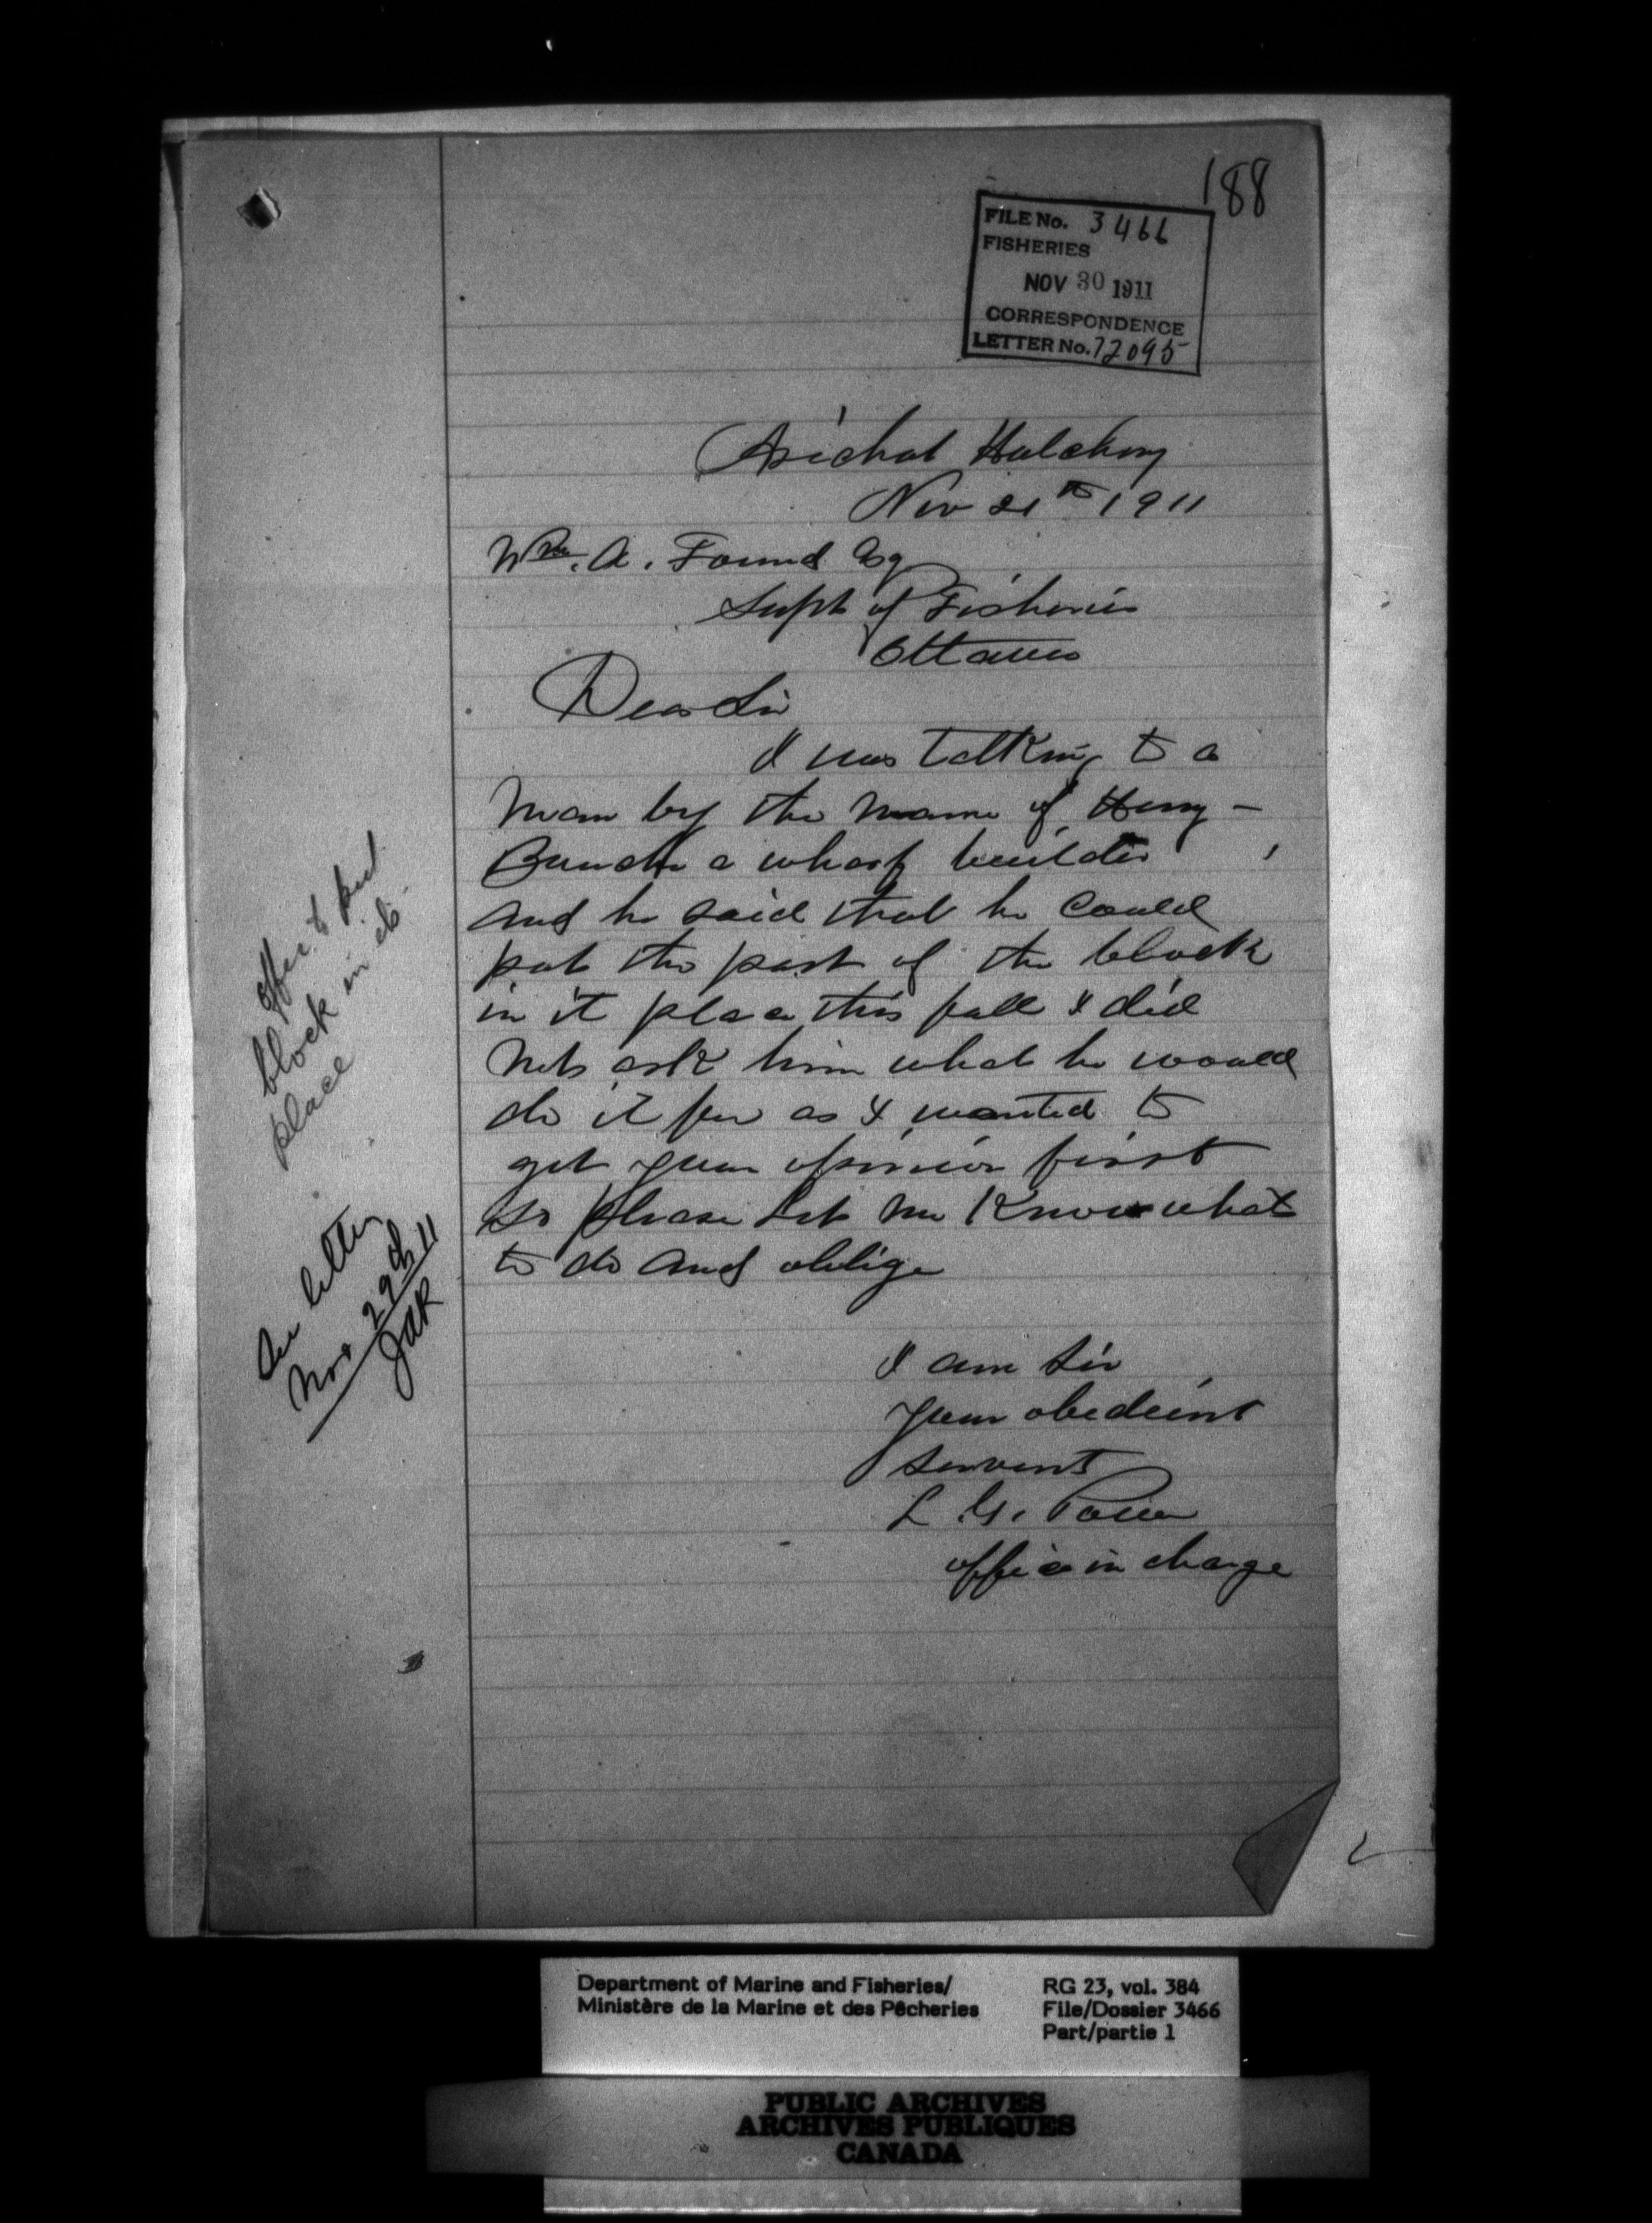 188
FILE No. 3466
FISHERIES
NOV 30 1911
CORRESPONDENCE
LETTER No. 72095
Arichat Hatchery
Nov 21th 1911
Wm. A. Found Esq
Supt of Fisheries
Ottawa
Dear Sir
I was talking to a
man by the name of Henry -
a wharf builder,
and he said that he could
put the part of the block
in it place this fall I did
not ask him what he would
do it for as I wanted to
get your opinion first
so please let me know what
to do and oblige
I am Sir
your obedeint
servent
L. G. Power
office in charge
offer to put
block in its
place
letter
Nov 29th 11
JAR
Department of Marine and Fisheries/
Ministère de la Marine et des Pêcheries
RG 23, vol. 384
File/Dossier 3466
Part/partie 1
PUBLIC ARCHIVES
ARCHIVES PUBLIQUES
CANADA